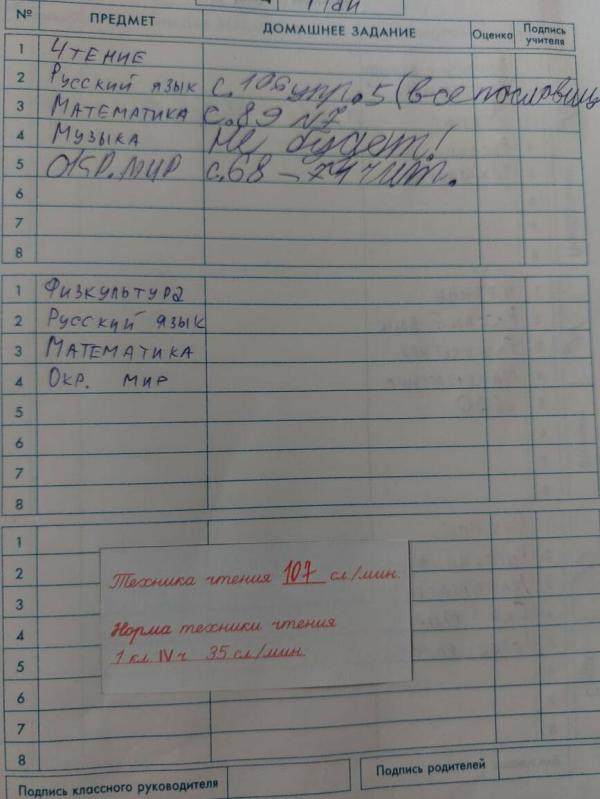 Май
№ ПРЕДМЕТ ДОМАШНЕЕ ЗАДАНИЕ Оценка Подпись учителя
1 Чтение
2 Русский язык с. 106 упр. 5 (все пословиц
3 Математика с. 89 №7
4 Музыка Не будет!
5 Окр. мир с. 68 – 74 чит.
6
7
8
1 Физкультура
2 Русский язык
3 Математика
4 Окр. мир
5
6
7
8
1
2
3
4
5
6
7
8
Техника чтения 107 сл/мин.
Норма техники чтения
1 кл. IV ч 35 сл/мин.
Подпись классного руководителя Подпись родителей